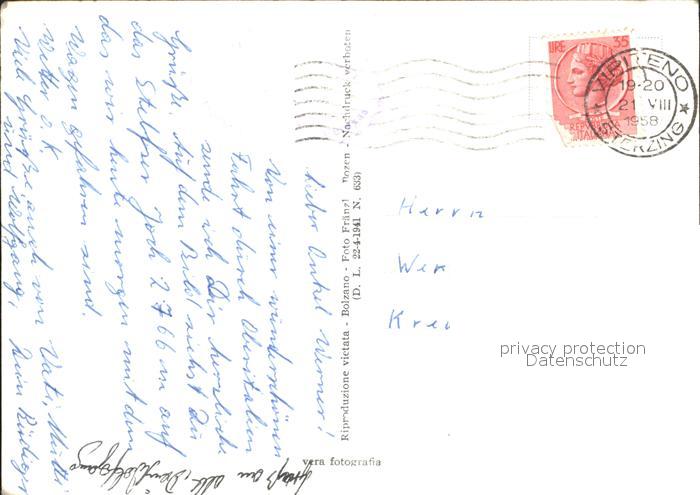 Lieber Onkel Werner!
Von einer wunderschönen
Fahrt durch Oberitalien
sende ich Dir herzliche
Grüße. Auf dem Bild siehst Du
das Stilfser Joch 2766 m auf
das wir heute morgen mit dem
Wagen gefahren sind.
Wetter o.K.
Viele Grüße auch von Vati, Mutti
und Wolfgang, Dein Rüdiger
Gruß an alle
Riproduzione vietata - Bolzano - Foto Fränzl Bozen - Nachdruck verboten
(D. L. 22-4-1941 N. 633)
vera fotografia
LIRE 35
VIPITENO
19-20
21 VIII
1958
STERZING
Herrn
Wer
Krei
privacy protection
Datenschutz